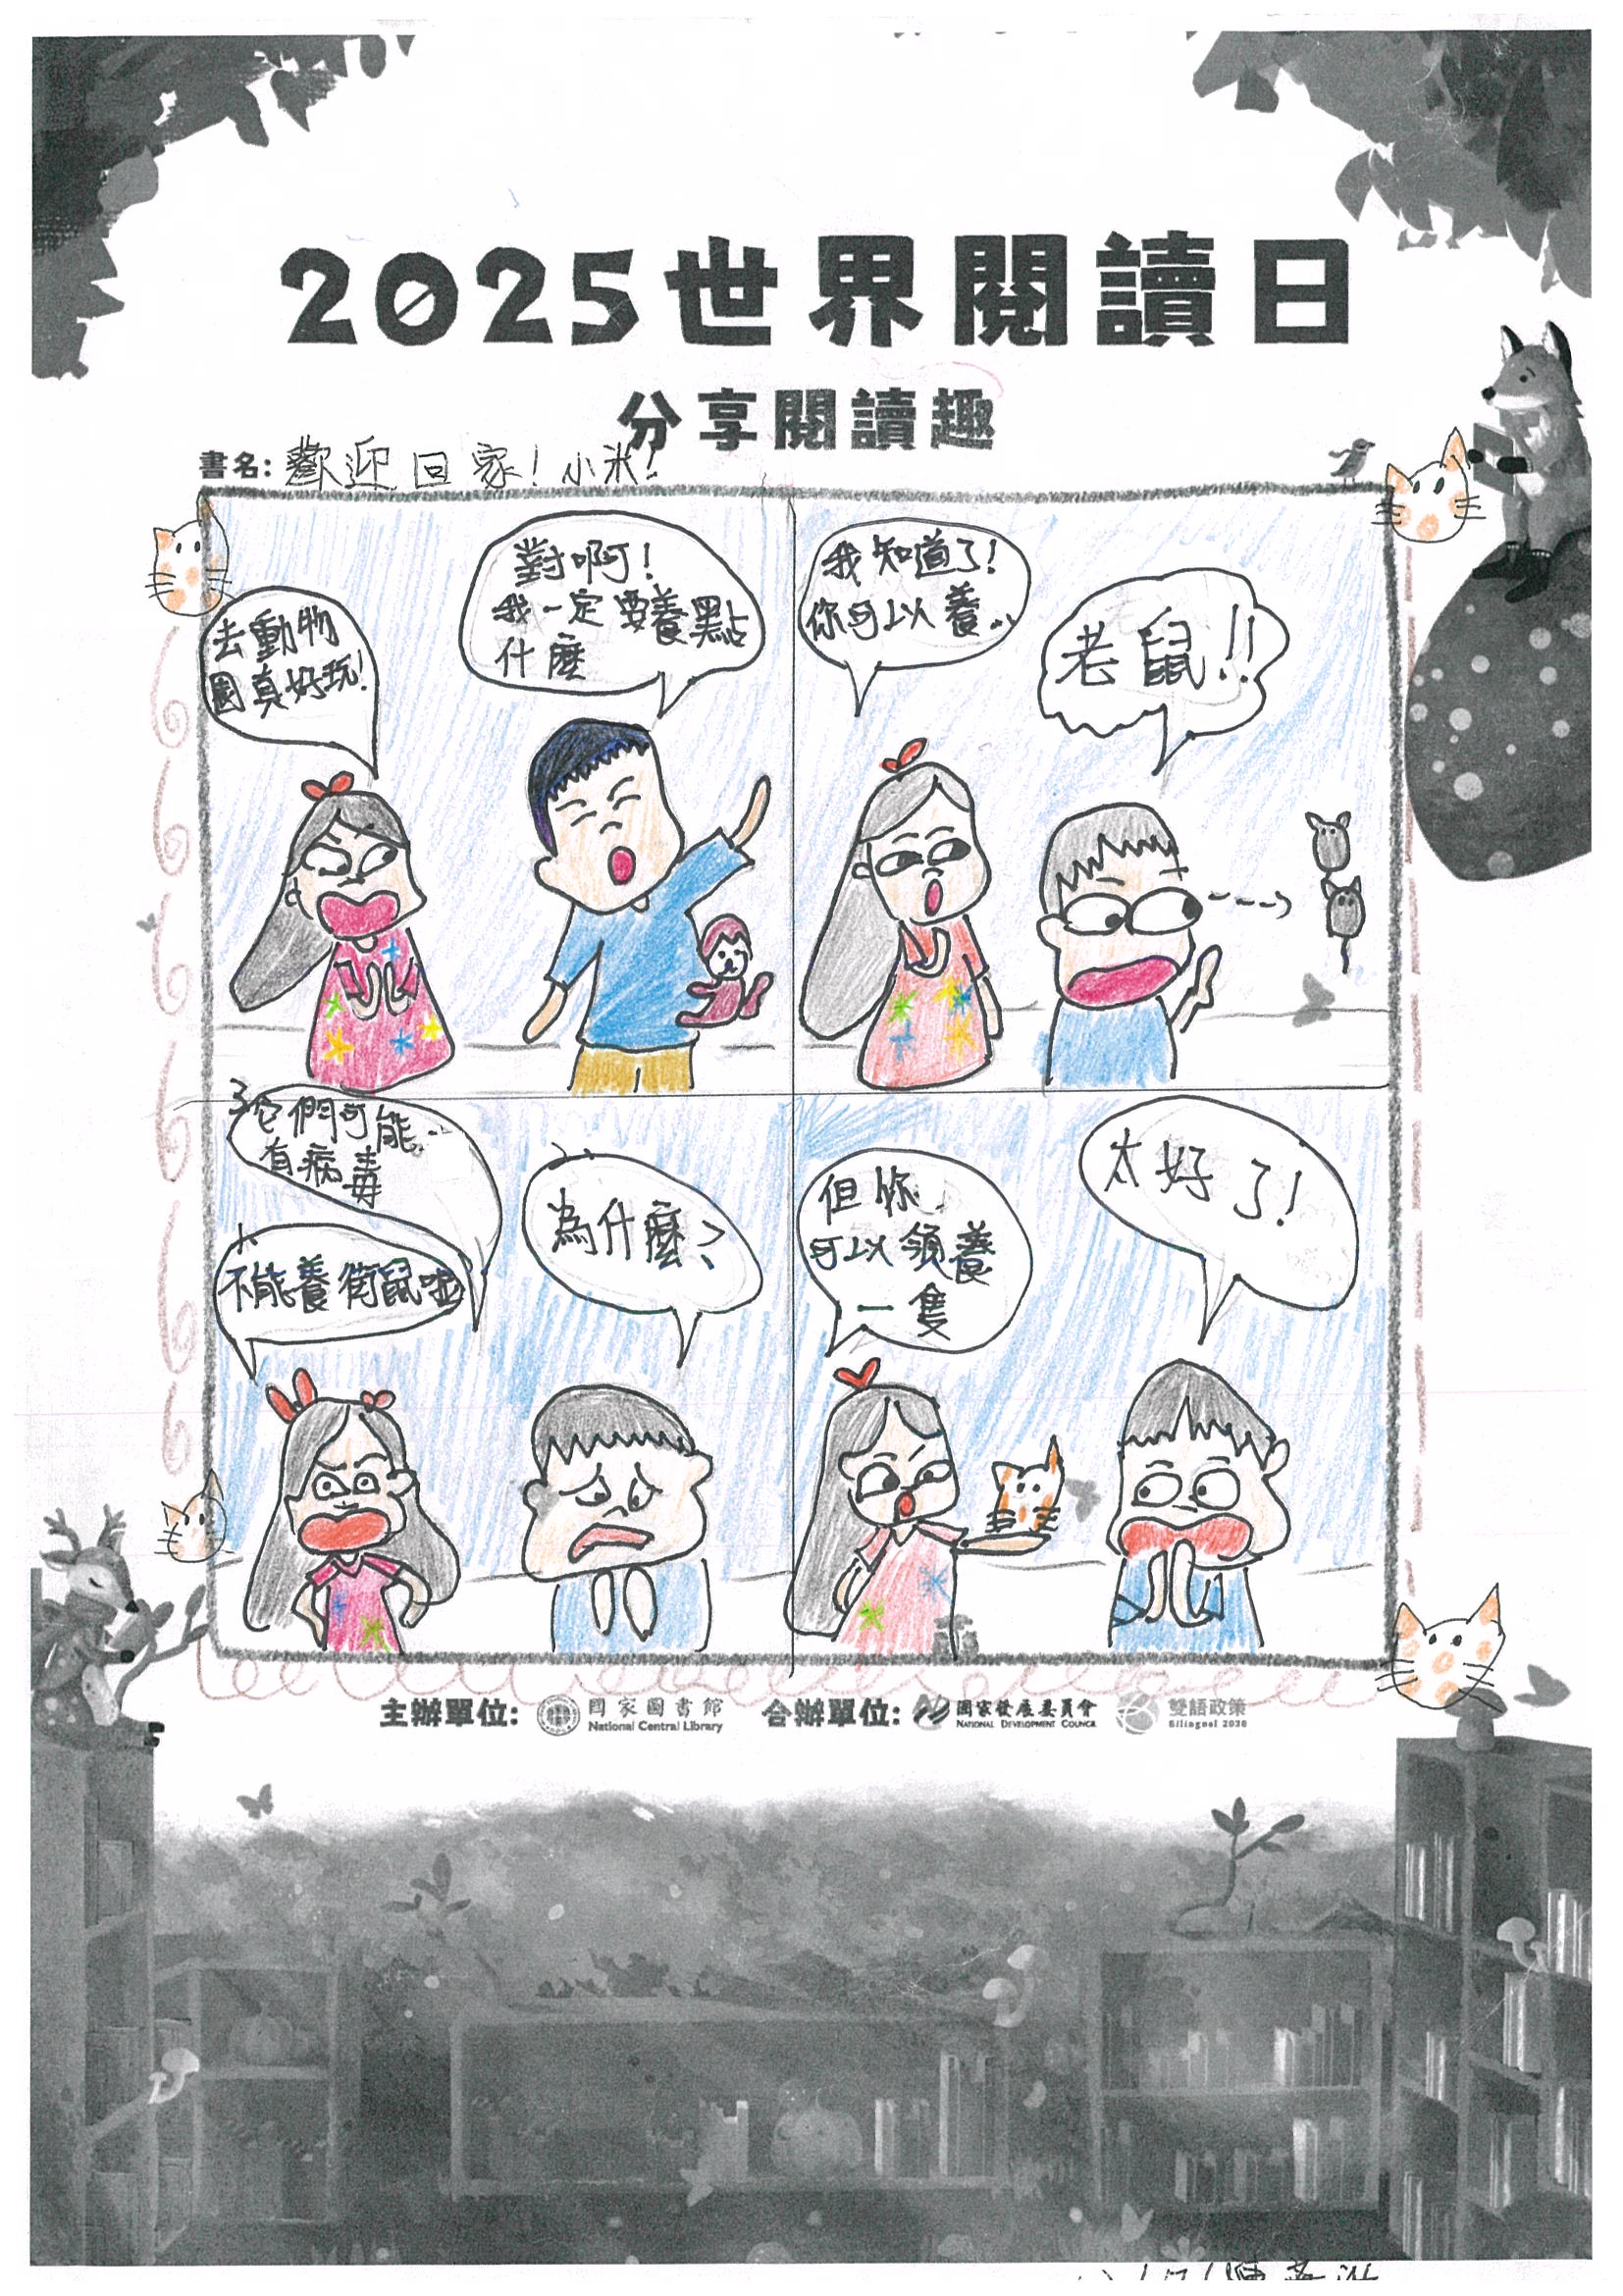 2025世界閱讀日
分享閱讀趣
書名：歡迎回家！小米！
去動物
園真好玩！
對啊！
我一定要養點
什麼
我知道了！
你可以養...
老鼠！！
不能養街鼠啦
為什麼？
它們可能...
有病毒
但你
可以領養
一隻
太好了！
主辦單位：
國家圖書館
National Central Library
合辦單位：
國家發展委員會
NATIONAL DEVELOPMENT COUNCIL
雙語政策
Bilingual 2030